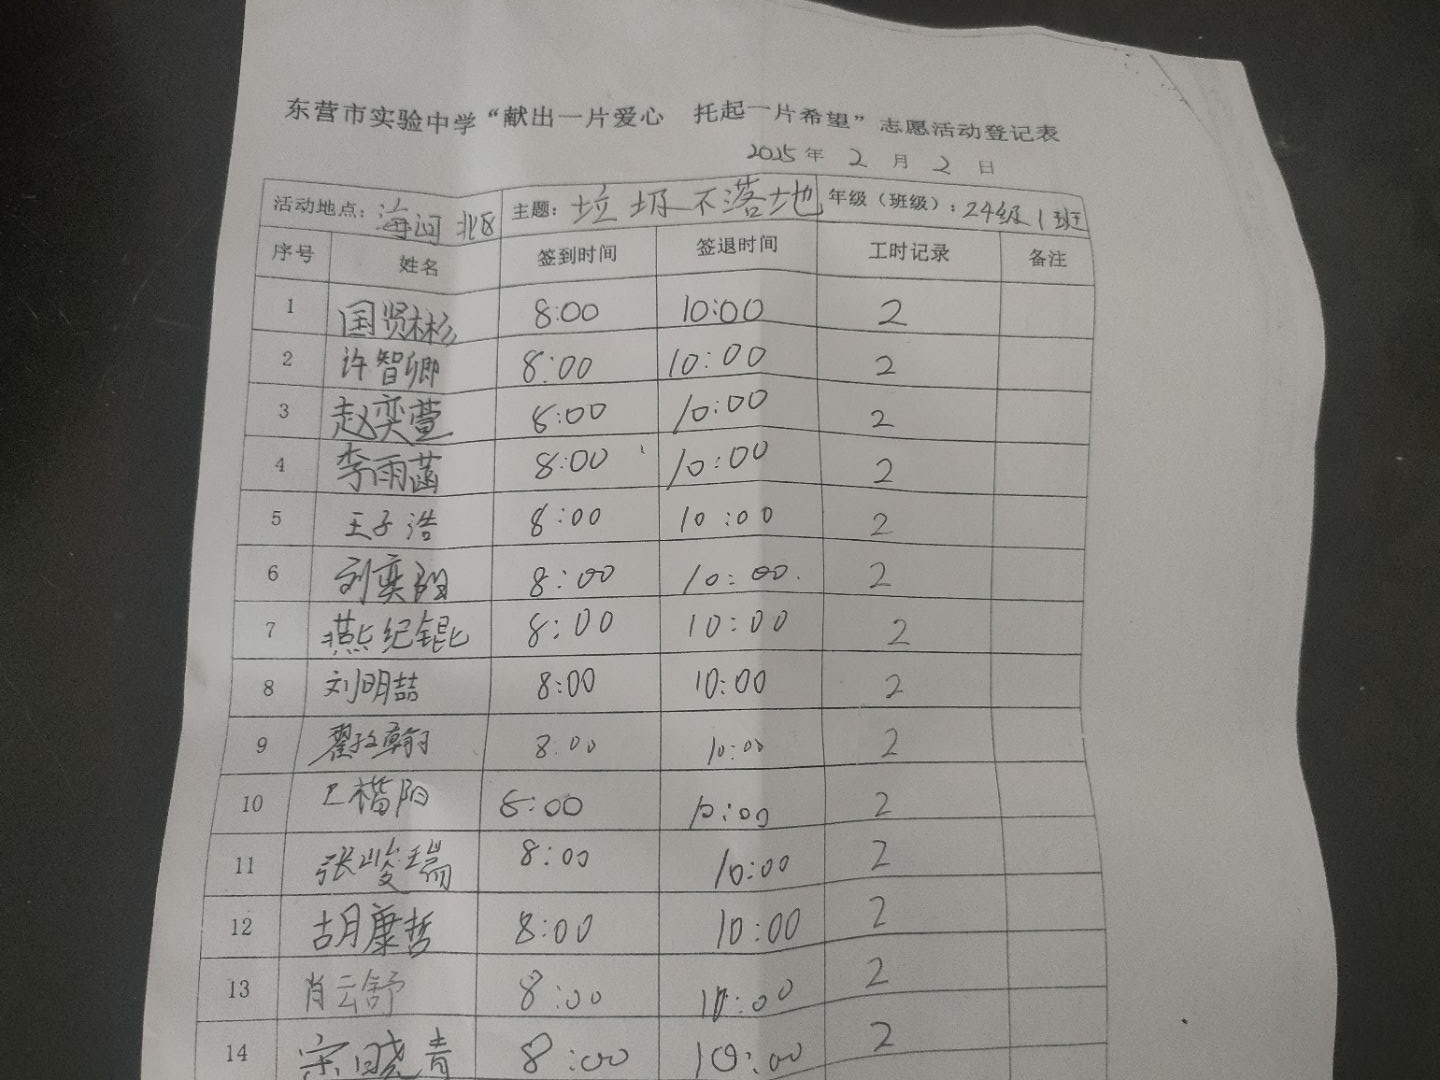 东营市实验中学“献出一片爱心 托起一片希望”志愿活动登记表
2025年 2 月 2 日
活动地点：海河北区 主题：垃圾不落地 年级（班级）：24级1班
序号 姓名 签到时间 签退时间 工时记录 备注
1 国贤彬 8:00 10:00 2
2 许智卿 8:00 10:00 2
3 赵奕萱 8:00 10:00 2
4 李雨菡 8:00 10:00 2
5 王子浩 8:00 10:00 2
6 刘奕 8:00 10:00 2
7 燕纪锟 8:00 10:00 2
8 刘明喆 8:00 10:00 2
9 翟政翰 8:00 10:00 2
10 楷阳 8:00 10:00 2
11 张峻瑞 8:00 10:00 2
12 胡康哲 8:00 10:00 2
13 肖云舒 8:00 10:00 2
14 宋晓青 8:00 10:00 2